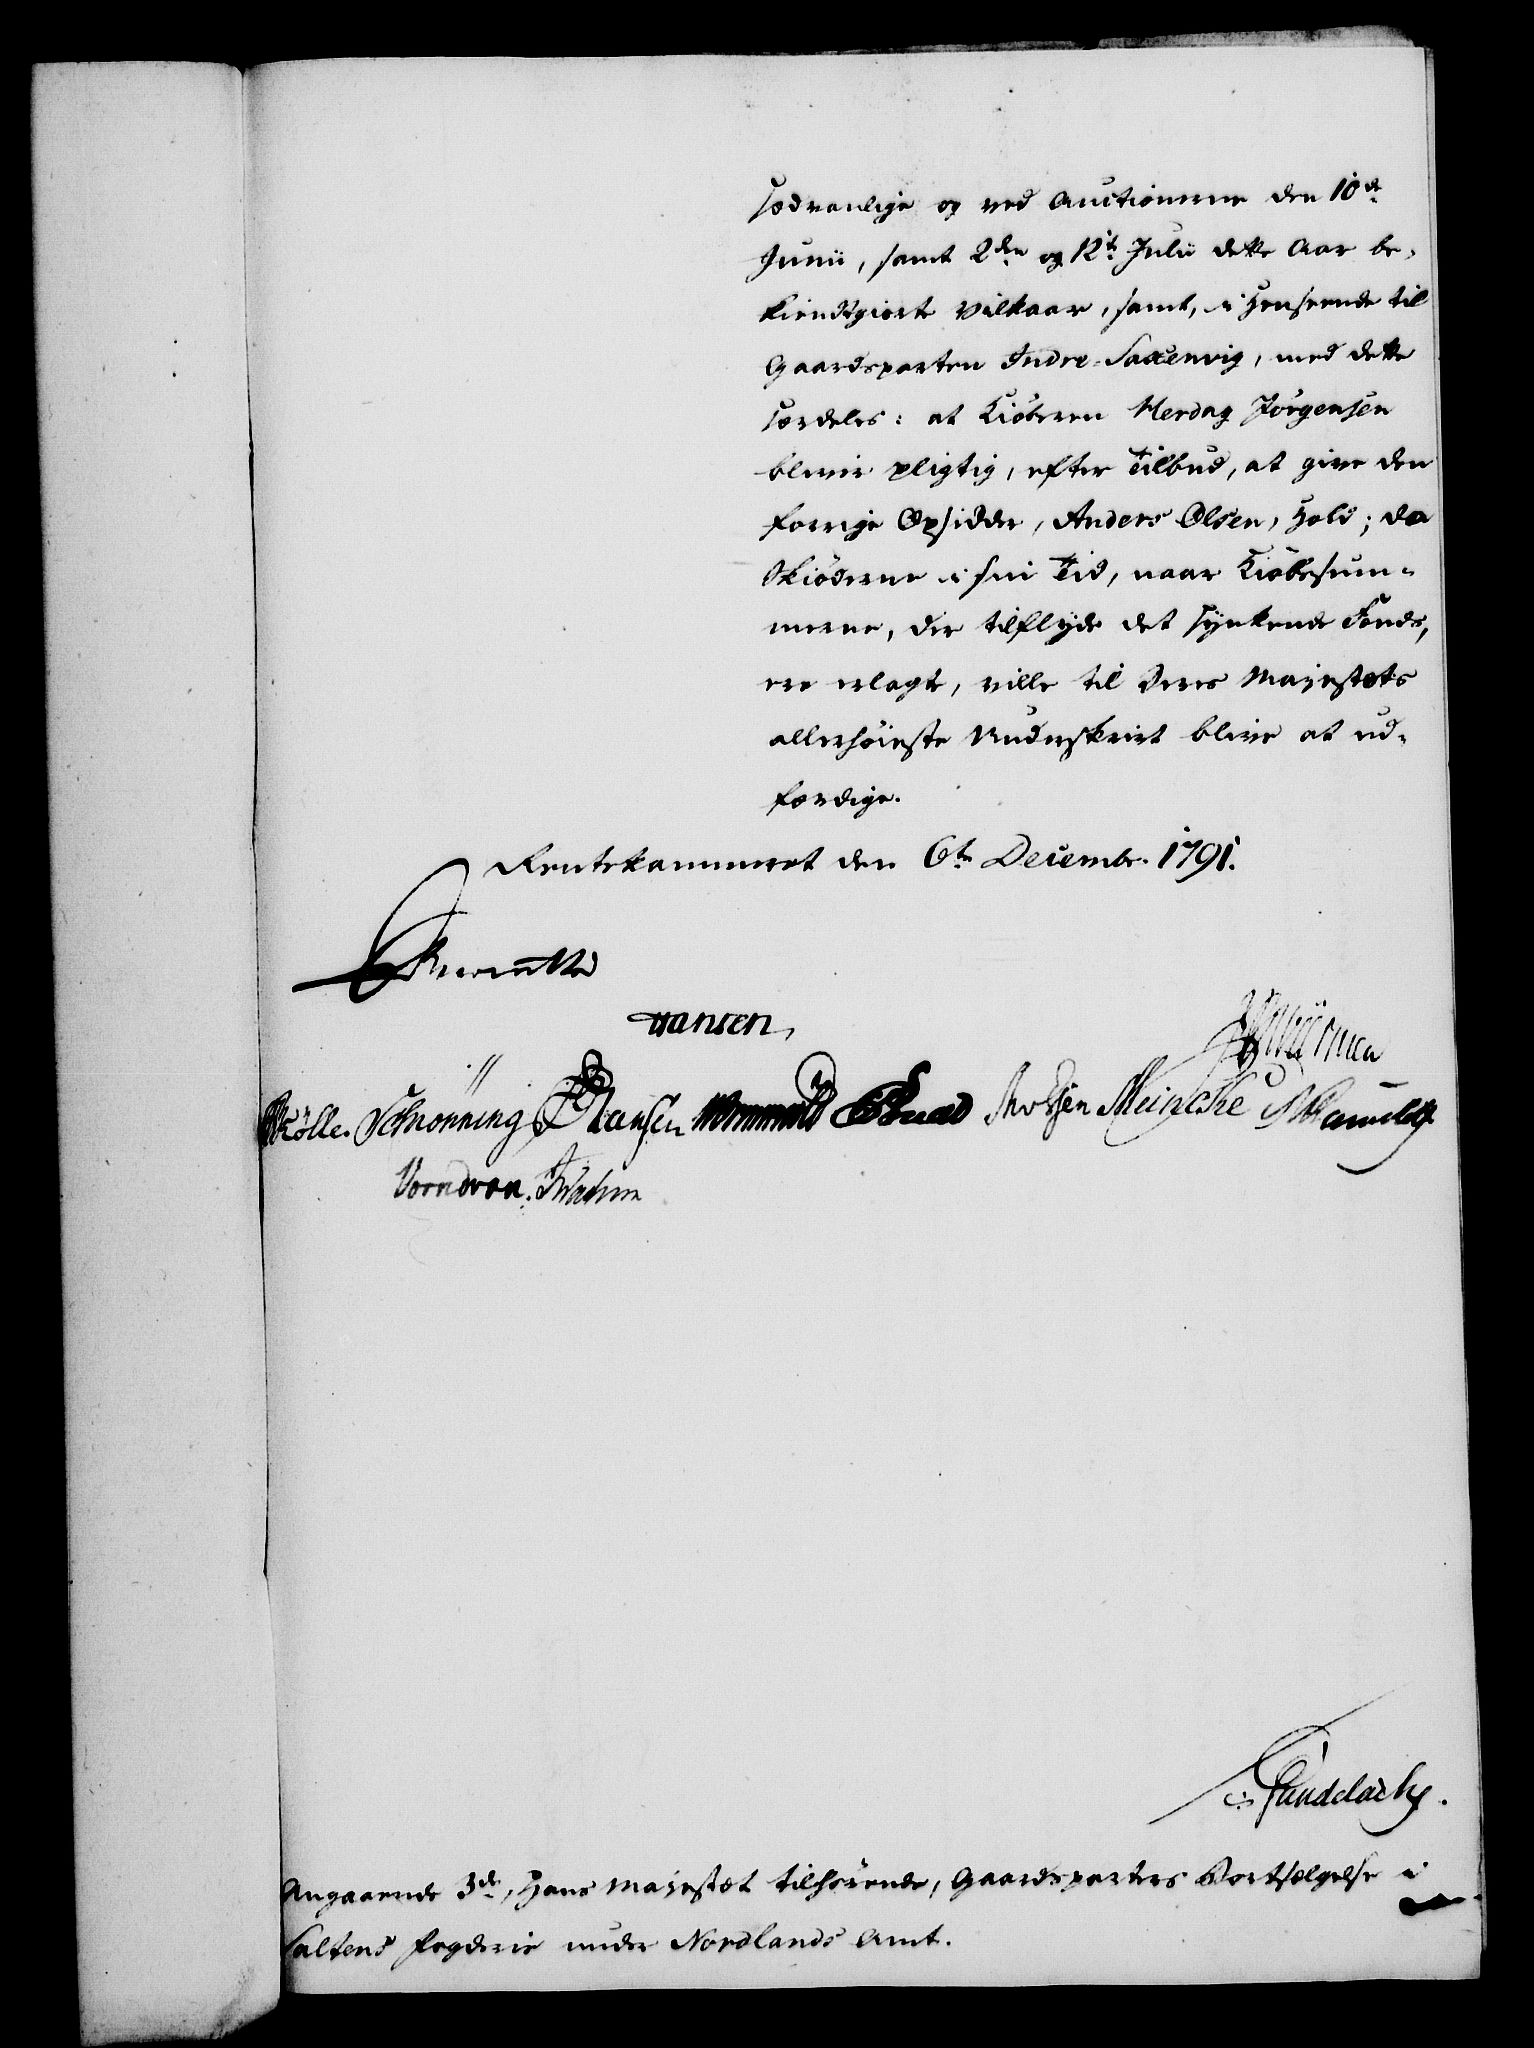 sædvanlige og ved Auctionerne den 10de
Junii, samt 2den og 12te Julii dette Aar be-
kiendtgiorte Vilkaar, samt, i Henseende til
Gaardsparten Indre-Saxenvig, med dette
særdeles: at Kiøberen Merdag Jørgensen
bliver pligtig, efter Tilbud, at give den
forrige Opsidder, Anders Olsen, Hold; da
Skiøderne i sin Tid, naar Kiøbesum-
merne, der tilflyde det synkende Fonds,
ere erlagte, ville til Deres Majestæts
allerhøieste Underskrivt blive at ud-
færdige.
Rentekammeret den 6te Decembr. 1791.
Hansen
Schrønning Hansen Meincke
Vorndran.
Angaaende 3de, Hans Majestæt tilhørende, Gaardsparters Bortsælgelse i
Saltens Fogderie under Nordlands Amt.